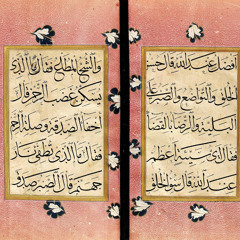 افضل عند الله قال حسن
الخلق والتواضع والصبر على
البلية والرضا بالقضاء
قال اي سيئة اعظم
عند الله قال سوء الخلق
والشح المطاع فقال ما الذي
يسكن غضب الرحمن قال
اخفاء الصدقة وصلة الرحم
فقال ما الذي تطفئ نار
جهنم قال الصبر